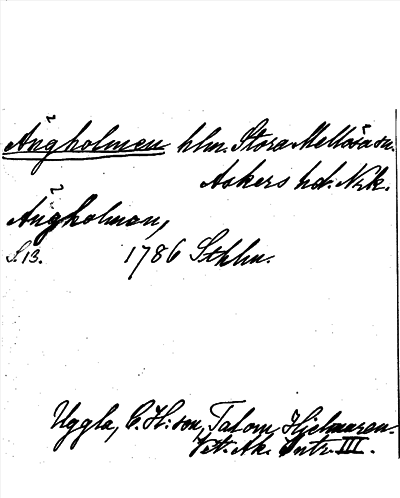 Ängholmen hlm. Stora Mellösa sn.
Askers hd. Nrk.
Ängholmen,
S. 13. 1786 Sthlm.
Uggla, C. H:son, Tal om Hjelmaren.
Vet. Ak. Intr. III.